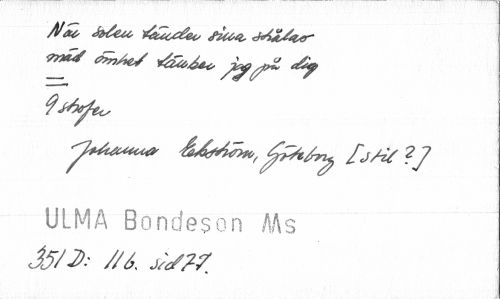 När solen tänder sina strålar
med ömhet tänker jag på dig
=
9 strofer
Johanna Ekström, Göteborg [stil?]
ULMA Bondeson Ms
351 D: 116. sid 77.